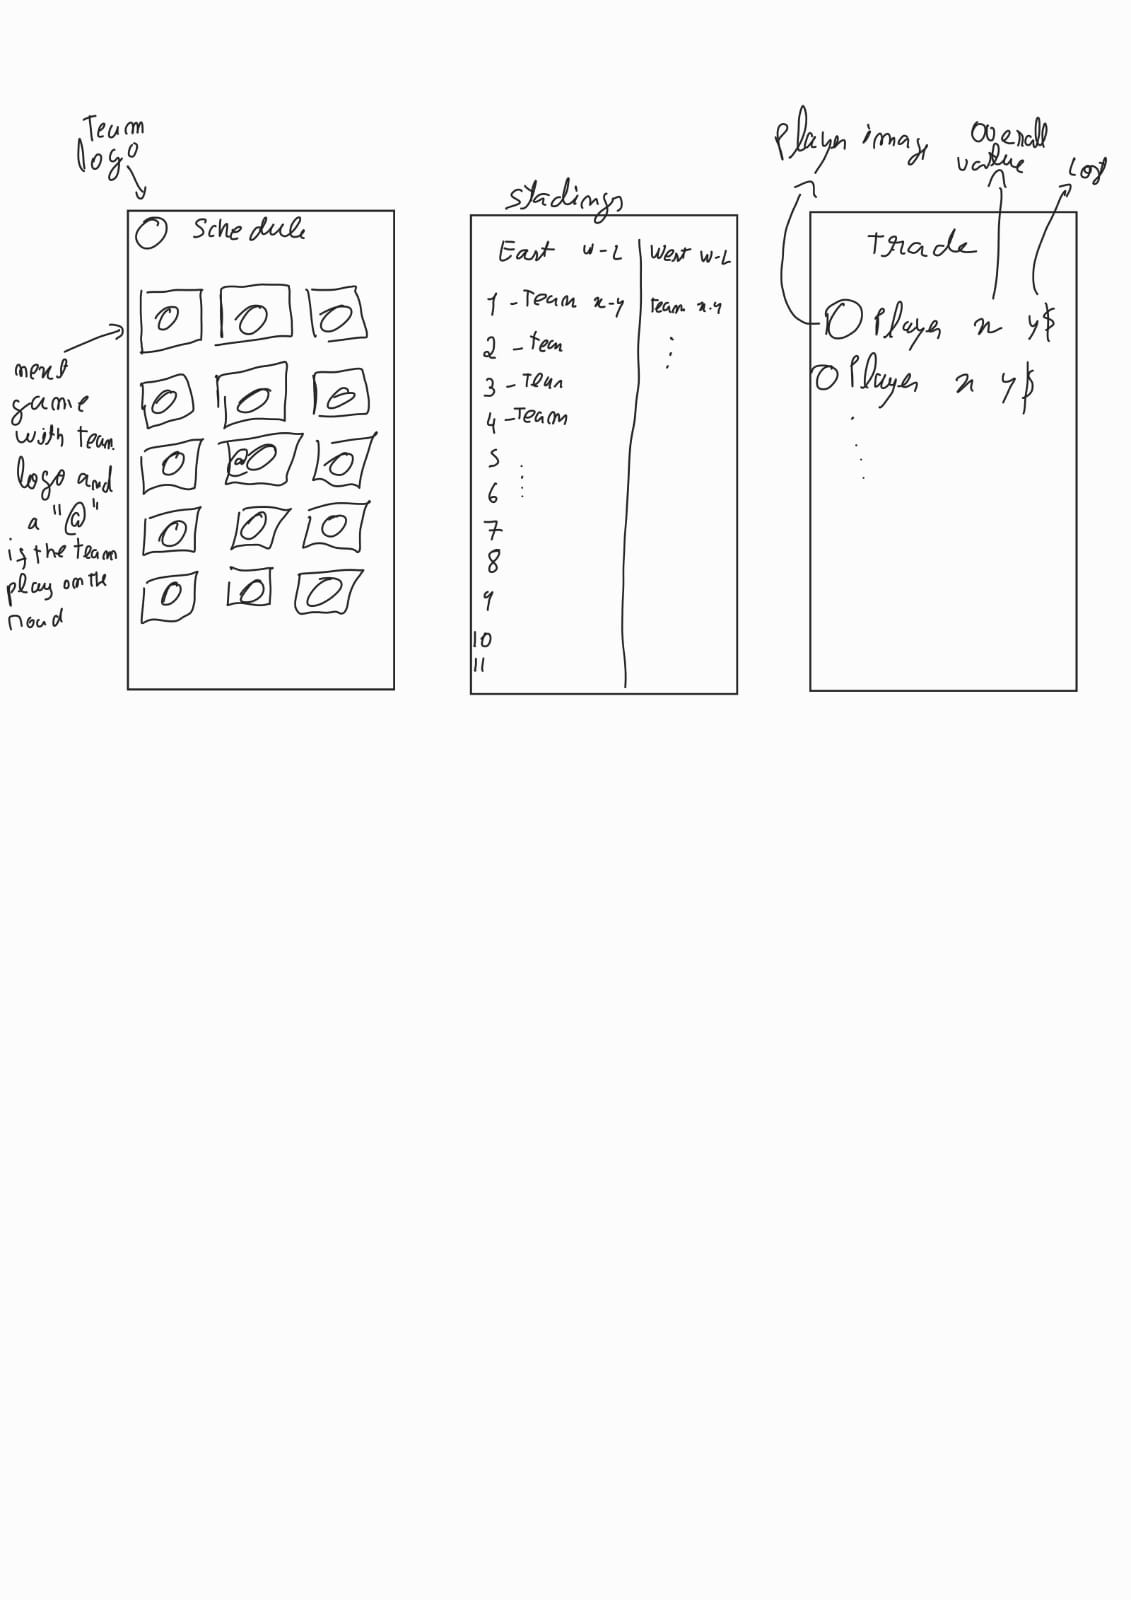 Team
logo
Schedule
next
game
with team
logo and
a "@"
if the team
play on the
road
@
Stadings
East W-L
West W-L
1 - Team x-y
team x-y
2 - team
3 - Team
4 - Team
5
6
7
8
9
10
11
Player image
Overall
value
Cost
Trade
Player x y$
Player x y$